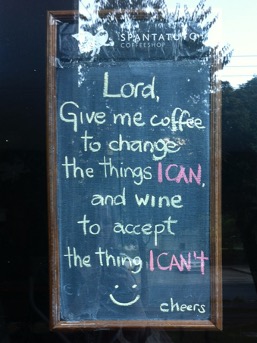 SPANTATUYO
COFFEESHOP
Lord,
Give me coffee
to change
the things I CAN,
and wine
to accept
the thing I CAN'T
cheers